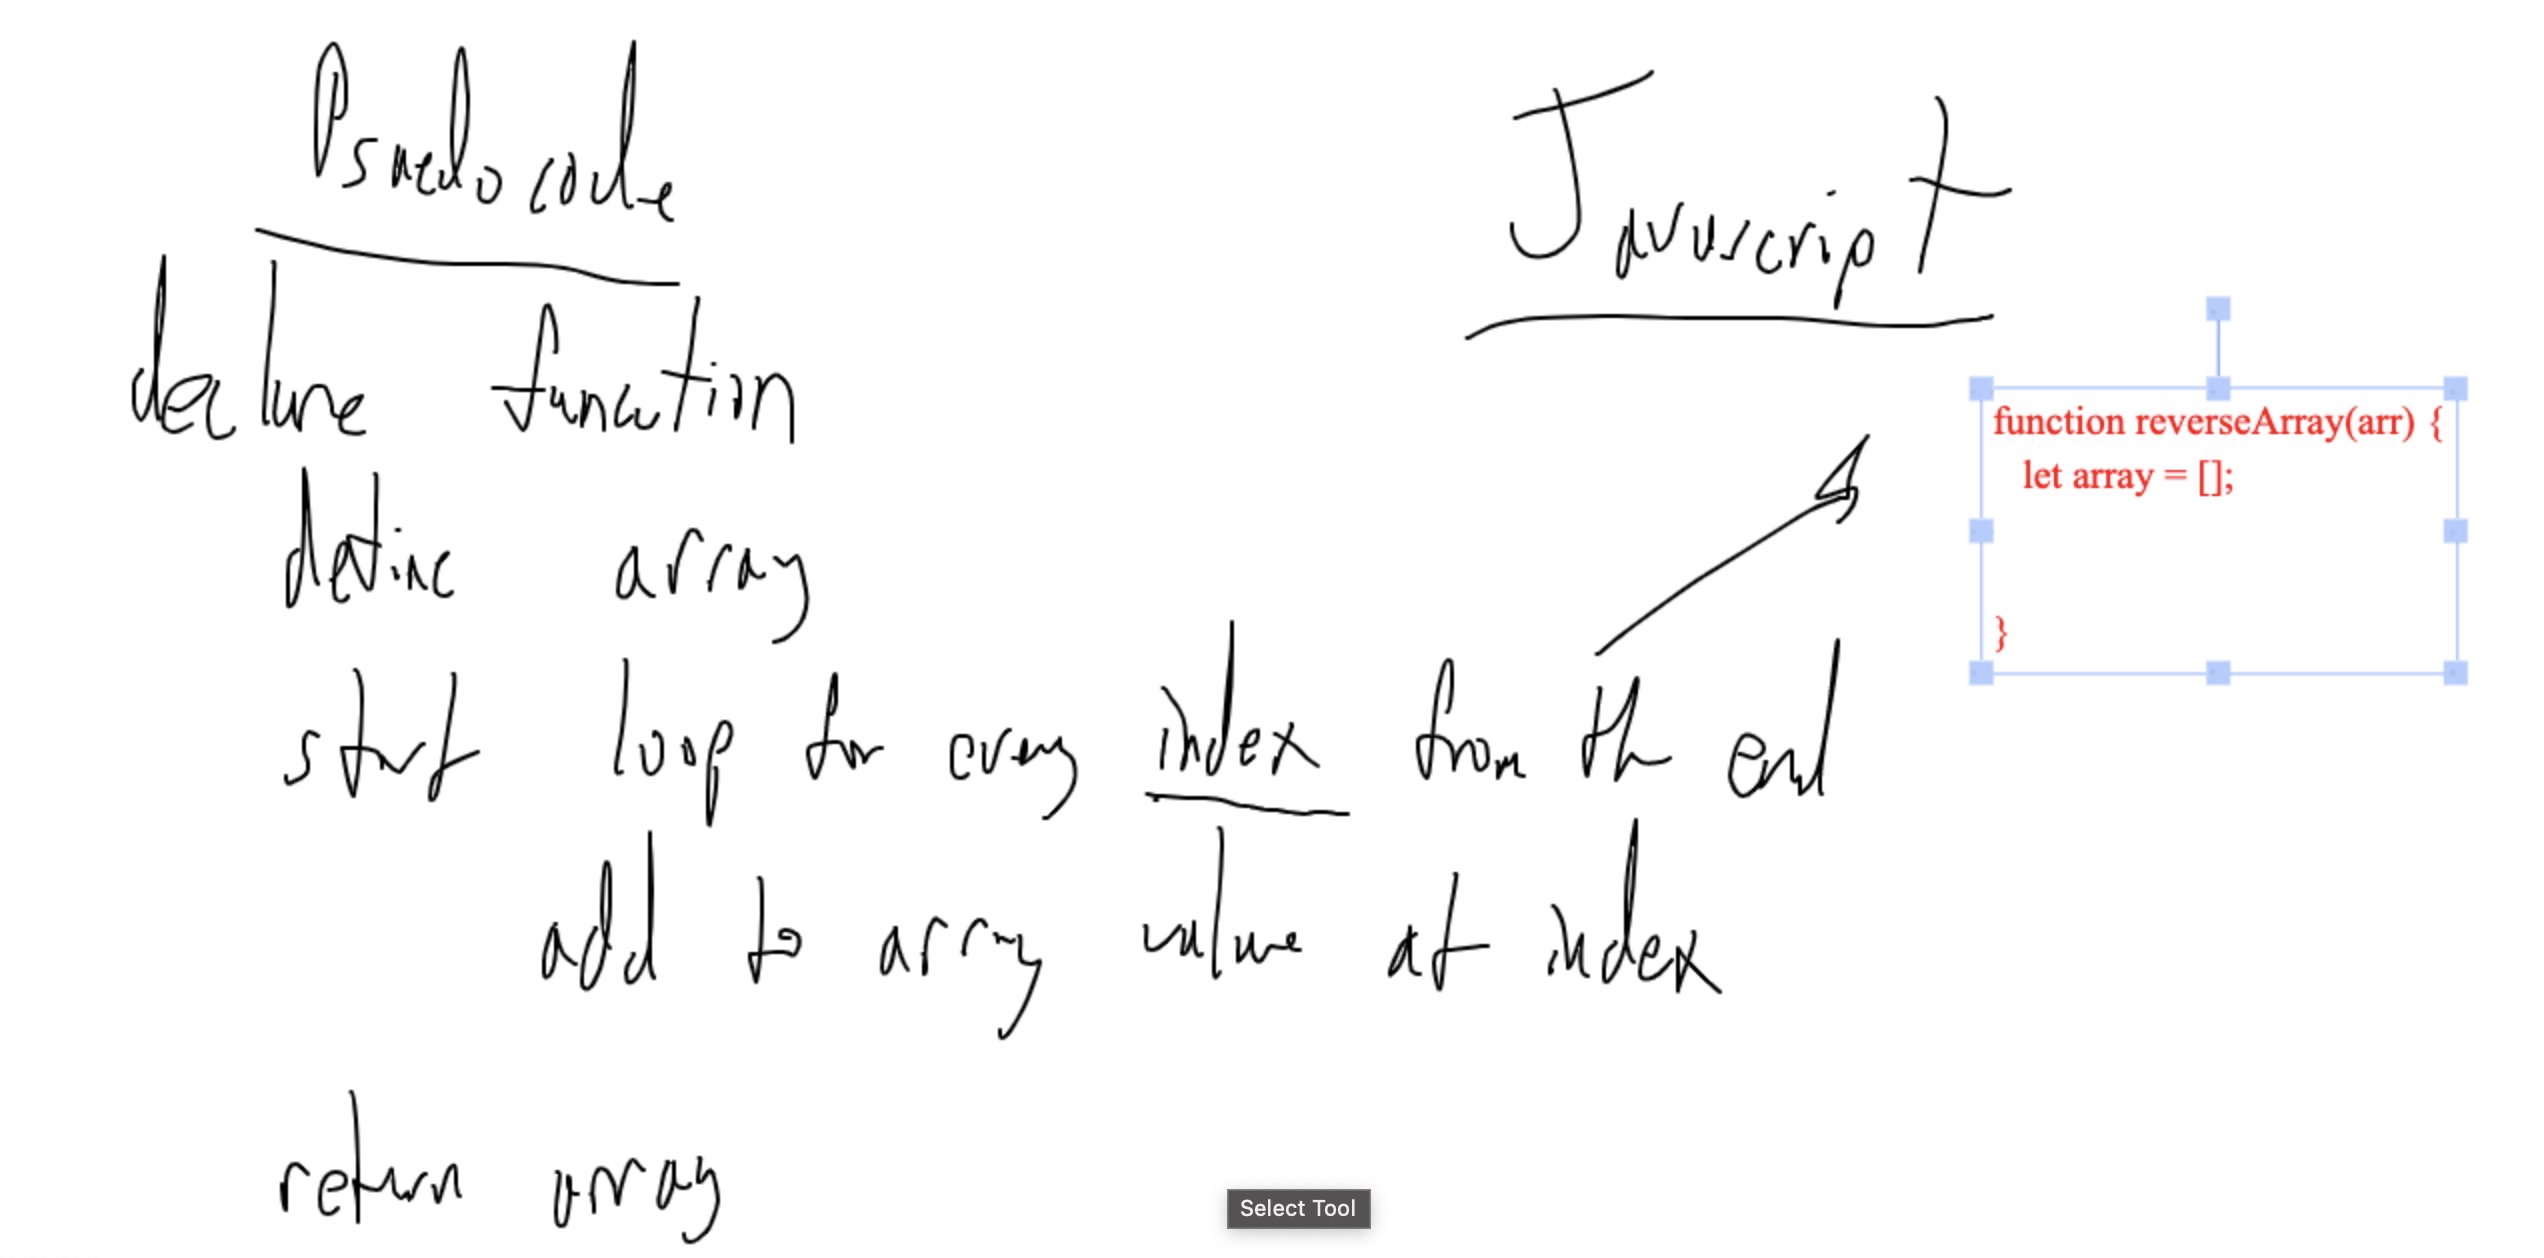 Psuedocode
declare function
define array
start loop for every index from the end
add to array value at index
return array
Javascript
function reverseArray(arr) {
let array = [];
}
Select Tool